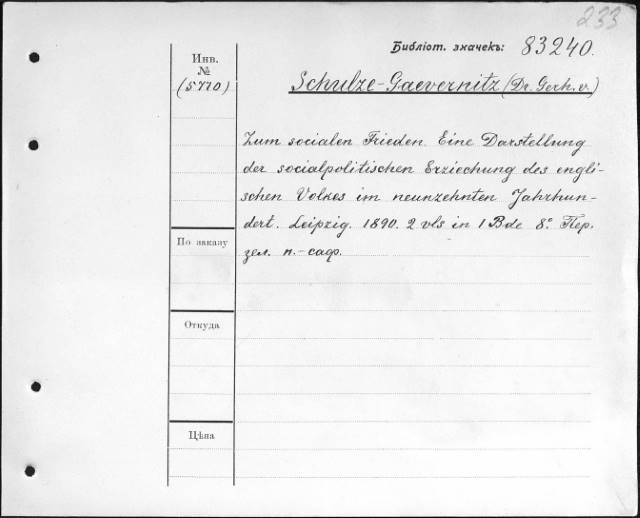 233
Библіот. значекъ: 83240.
Инв.
№
(5710)
Schulze-Gaevernitz (Dr. Gerh. v.)
Zum socialen Frieden. Eine Darstellung
der socialpolitischen Erziechung des engli-
schen Volkes im neunzehnten Jahrhun-
dert. Leipzig. 1890. 2 vls in 1 Bde 8º. Пер.
зел. п.-саф.
По заказу
Откуда
Цѣна